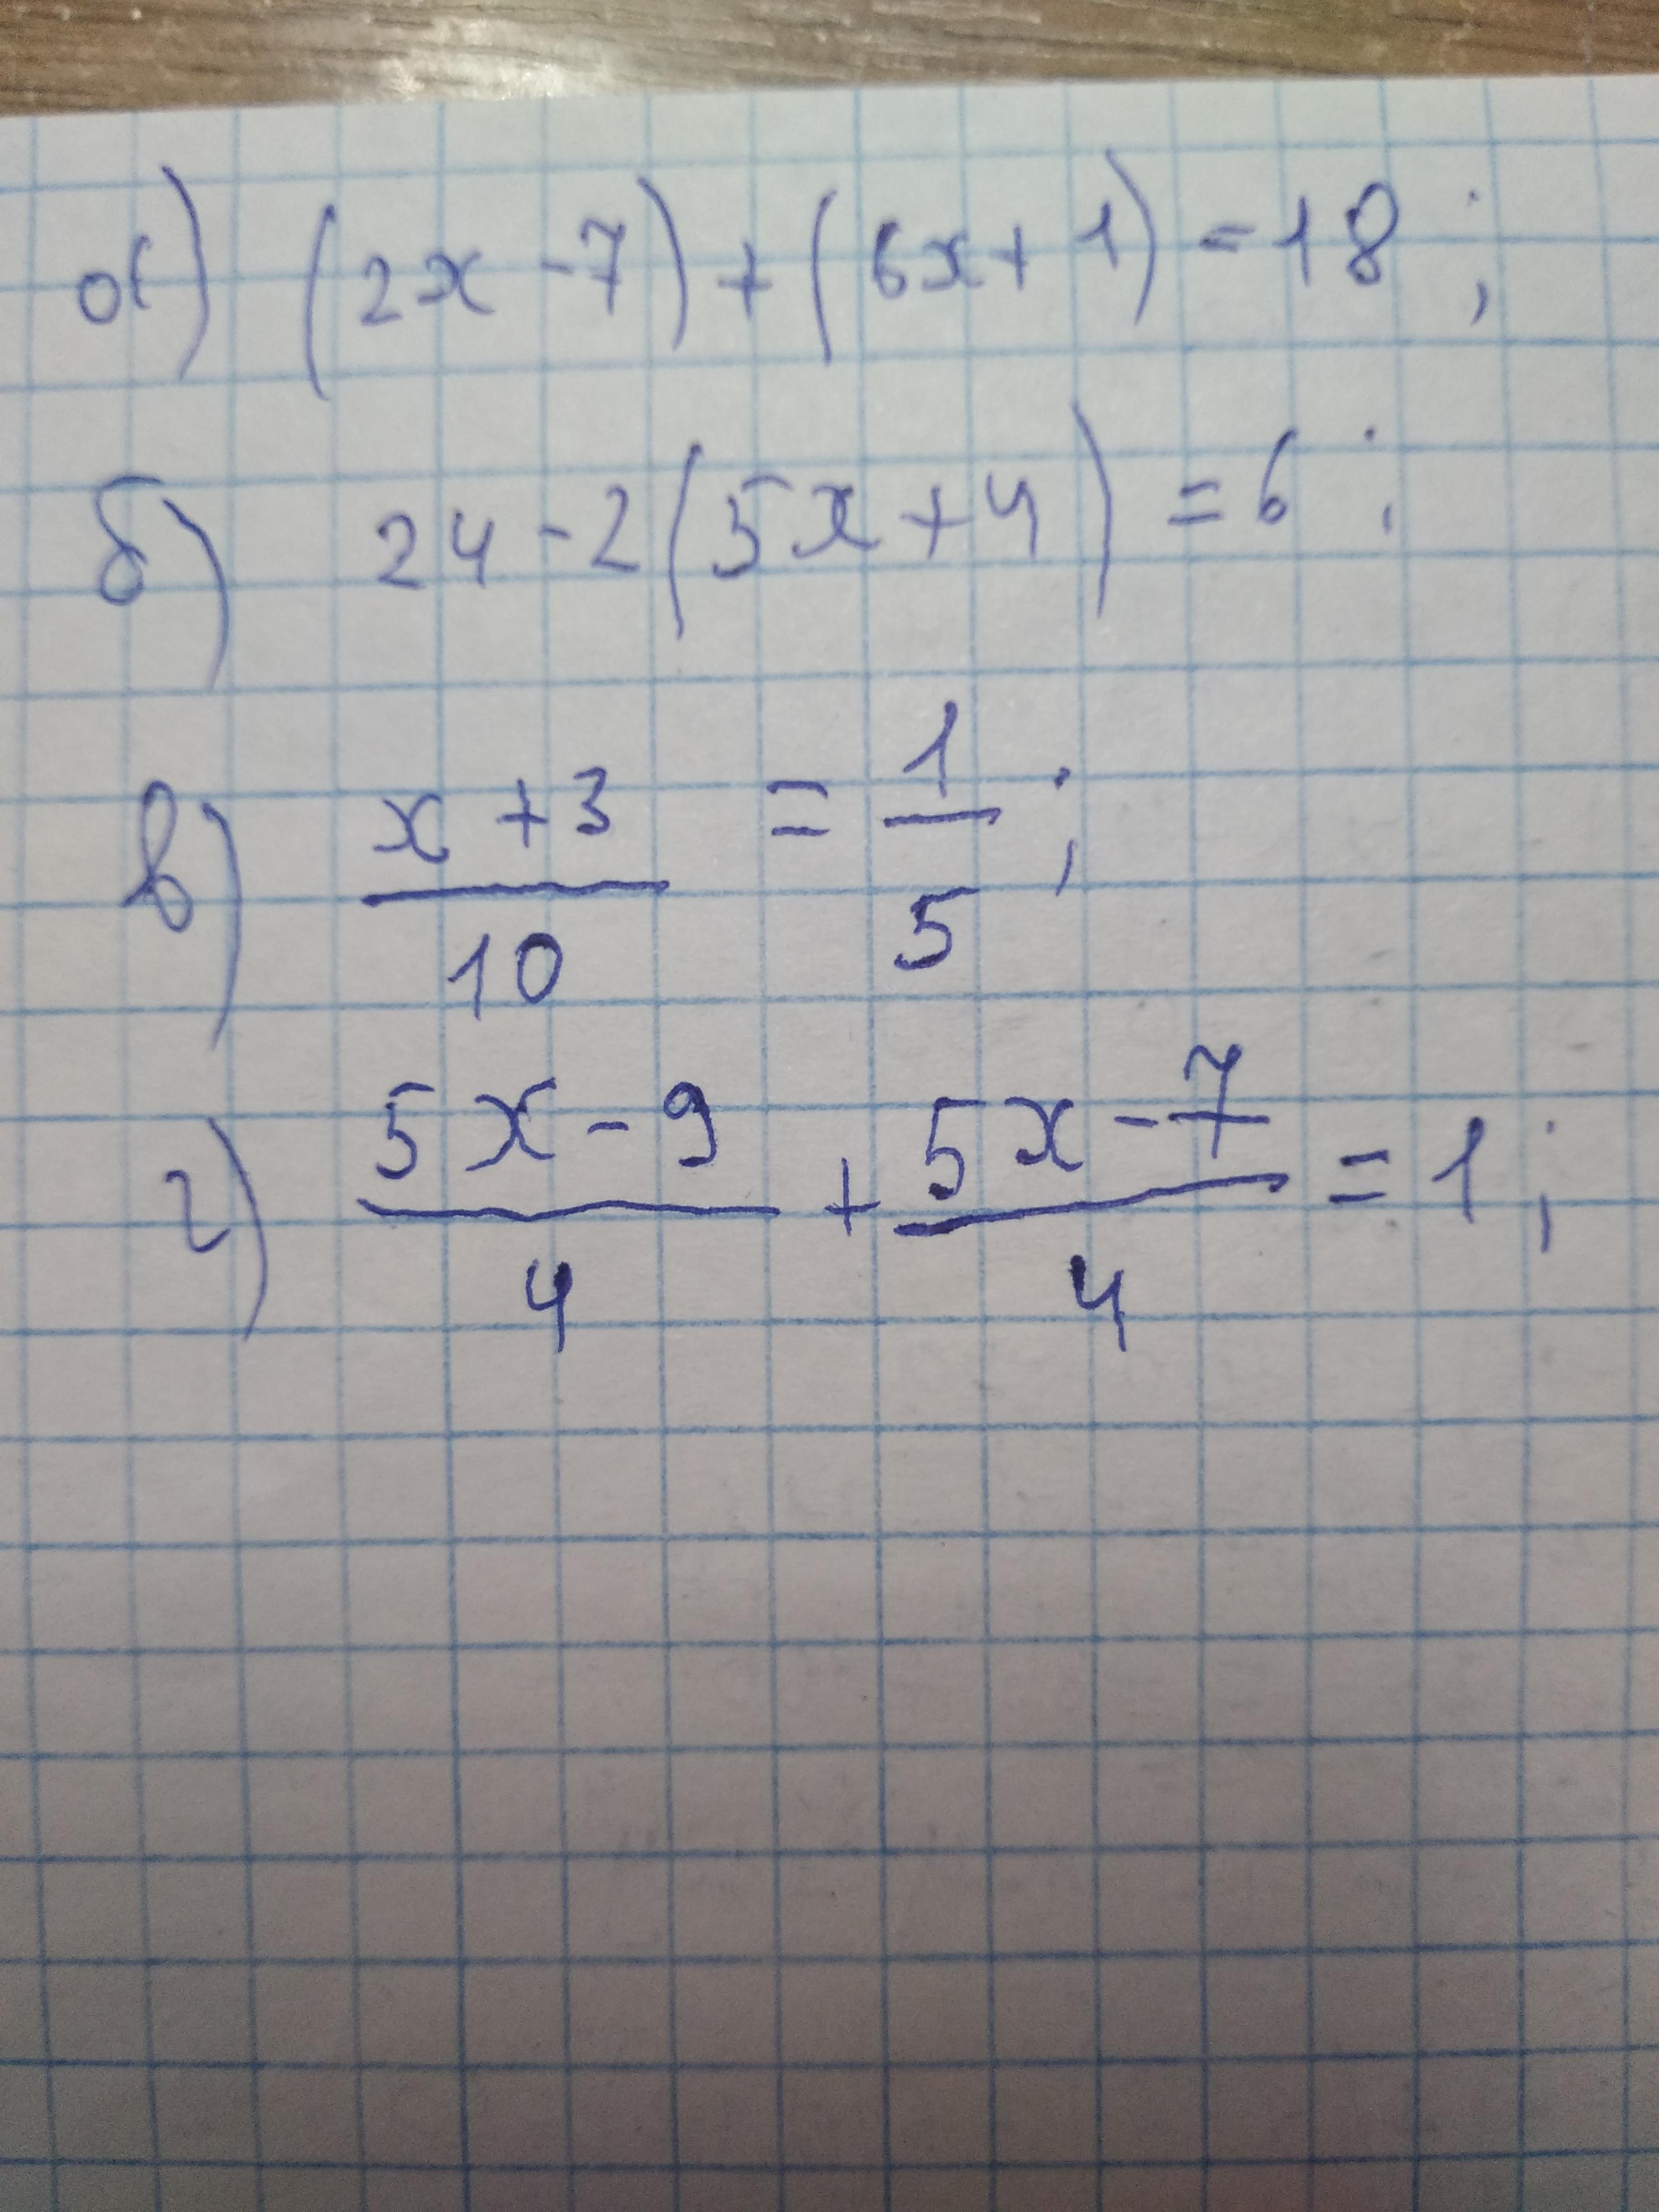 а) (2x - 7) + (6x + 1) = 18;
б) 24 - 2(5x + 4) = 6;
в) \frac{x + 3}{10} = \frac{1}{5};
г) \frac{5x - 9}{4} + \frac{5x - 7}{4} = 1;